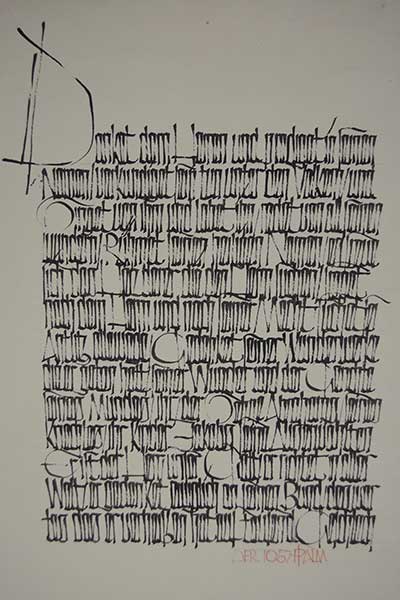 Danket dem Herren und prediget seinen
Namen verkündiget sein tun unter den Völkern
Singet von ihm und lobet ihn redet von allen seinen
wundern Rühmet seinen heiligen Namen es freue
sich das Herz derer die den Herren suchen
nach dem Herrn und nach seiner Macht suchet
Antlitz allewege Gedenket seiner Wunderwerke
die er getan hat seiner Wunder und der Gerichte
seines Mundes ihr der Same Abrahams seines
Knechtes ihr Kinder Jakobs seine Auserwählten
Er ist der Herr unser Gott er richtet in aller
Welt er gedenket ewiglich an seinen Bund des wor
tes das er verheißen hat auf tausend
DER 105. PSALM